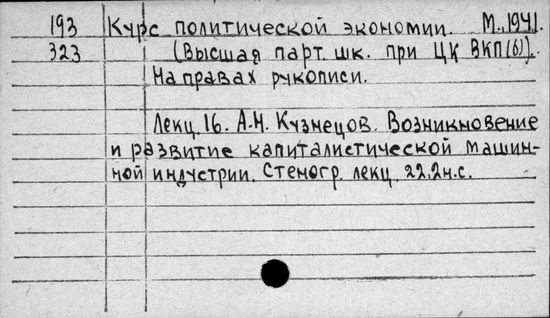 193 Курс политической экономии. М., 1941.
323 (Высшая парт. шк. при ЦК ВКП(б)).
На правах рукописи.
Лекц. 16. А.Н. Кузнецов. Возникновение
и развитие капиталистической машин-
ной индустрии. Стеногр. лекц. 22.2н.с.